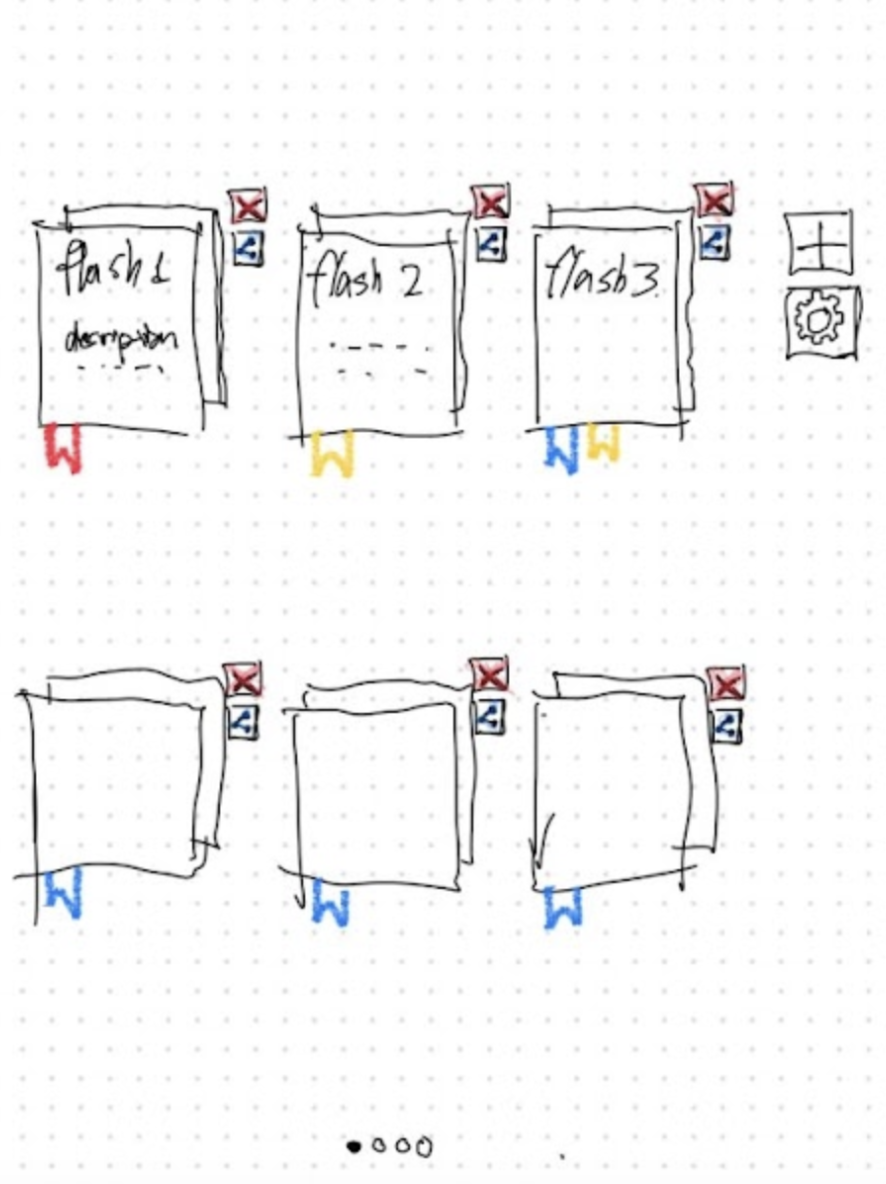 flash 1
description
flash 2
flash 3.